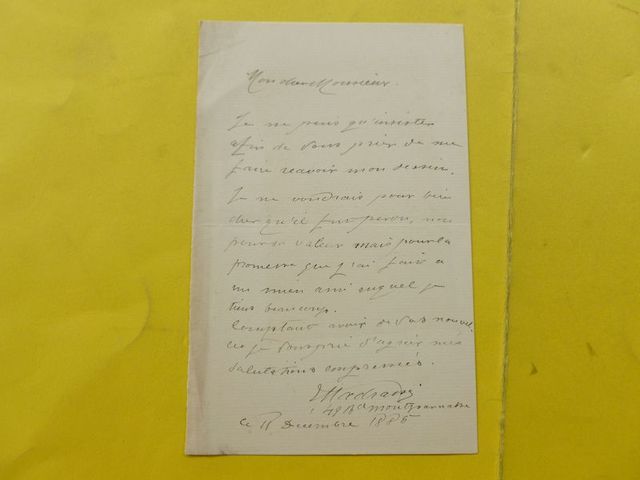 Mon cher Monsieur.
Je ne puis qu'insister
afin de vous prier de me
faire recevoir mon dessin.
Je ne voudrais pour bien
cher qu'il fut perdu, non
pour sa valeur mais pour la
promesse que j'ai fait a
un mien ami auquel je
tiens beaucoup.
Comptant avoir de vos nouvel.
les je vous prie d'agréer mes
salutations empressés.
49 Bd Montparnasse
Ce Decembre